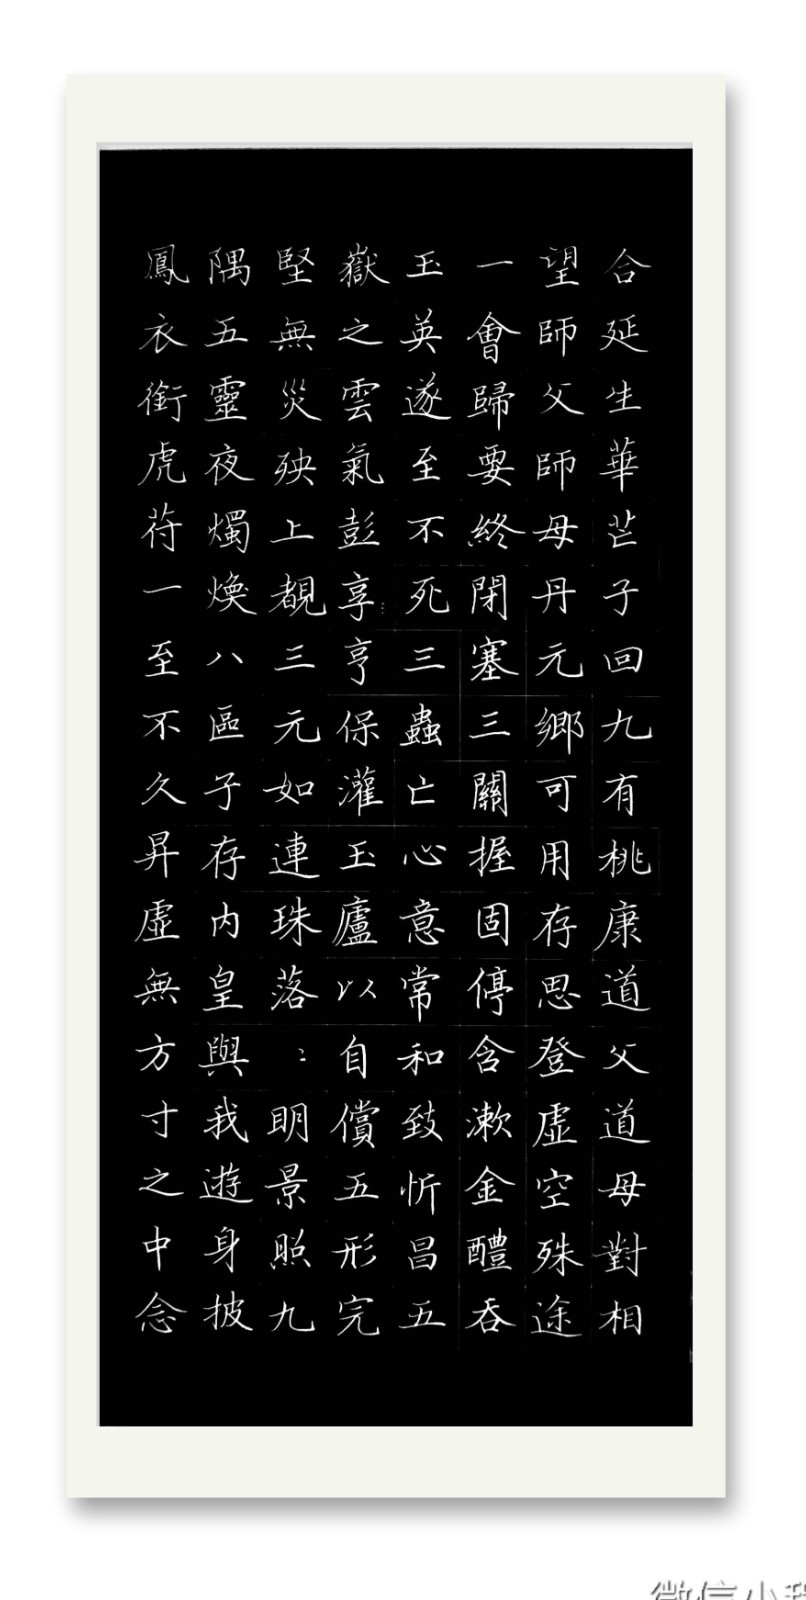 合延生華芒子回九有桃康道父道母對相
望師父師母丹元鄉可用存思登虛空殊途
一會歸要終閉塞三關握固停含漱金醴吞
玉英遂至不死三蟲亡心意常和致忻昌五
嶽之雲氣彭享亨保灌玉廬以自償五形完
堅無災殃上覩三元如連珠落〻明景照九
隅五靈夜燭煥八區子存內皇與我遊身披
鳳衣銜虎苻一至不久昇虛無方寸之中念
微信小